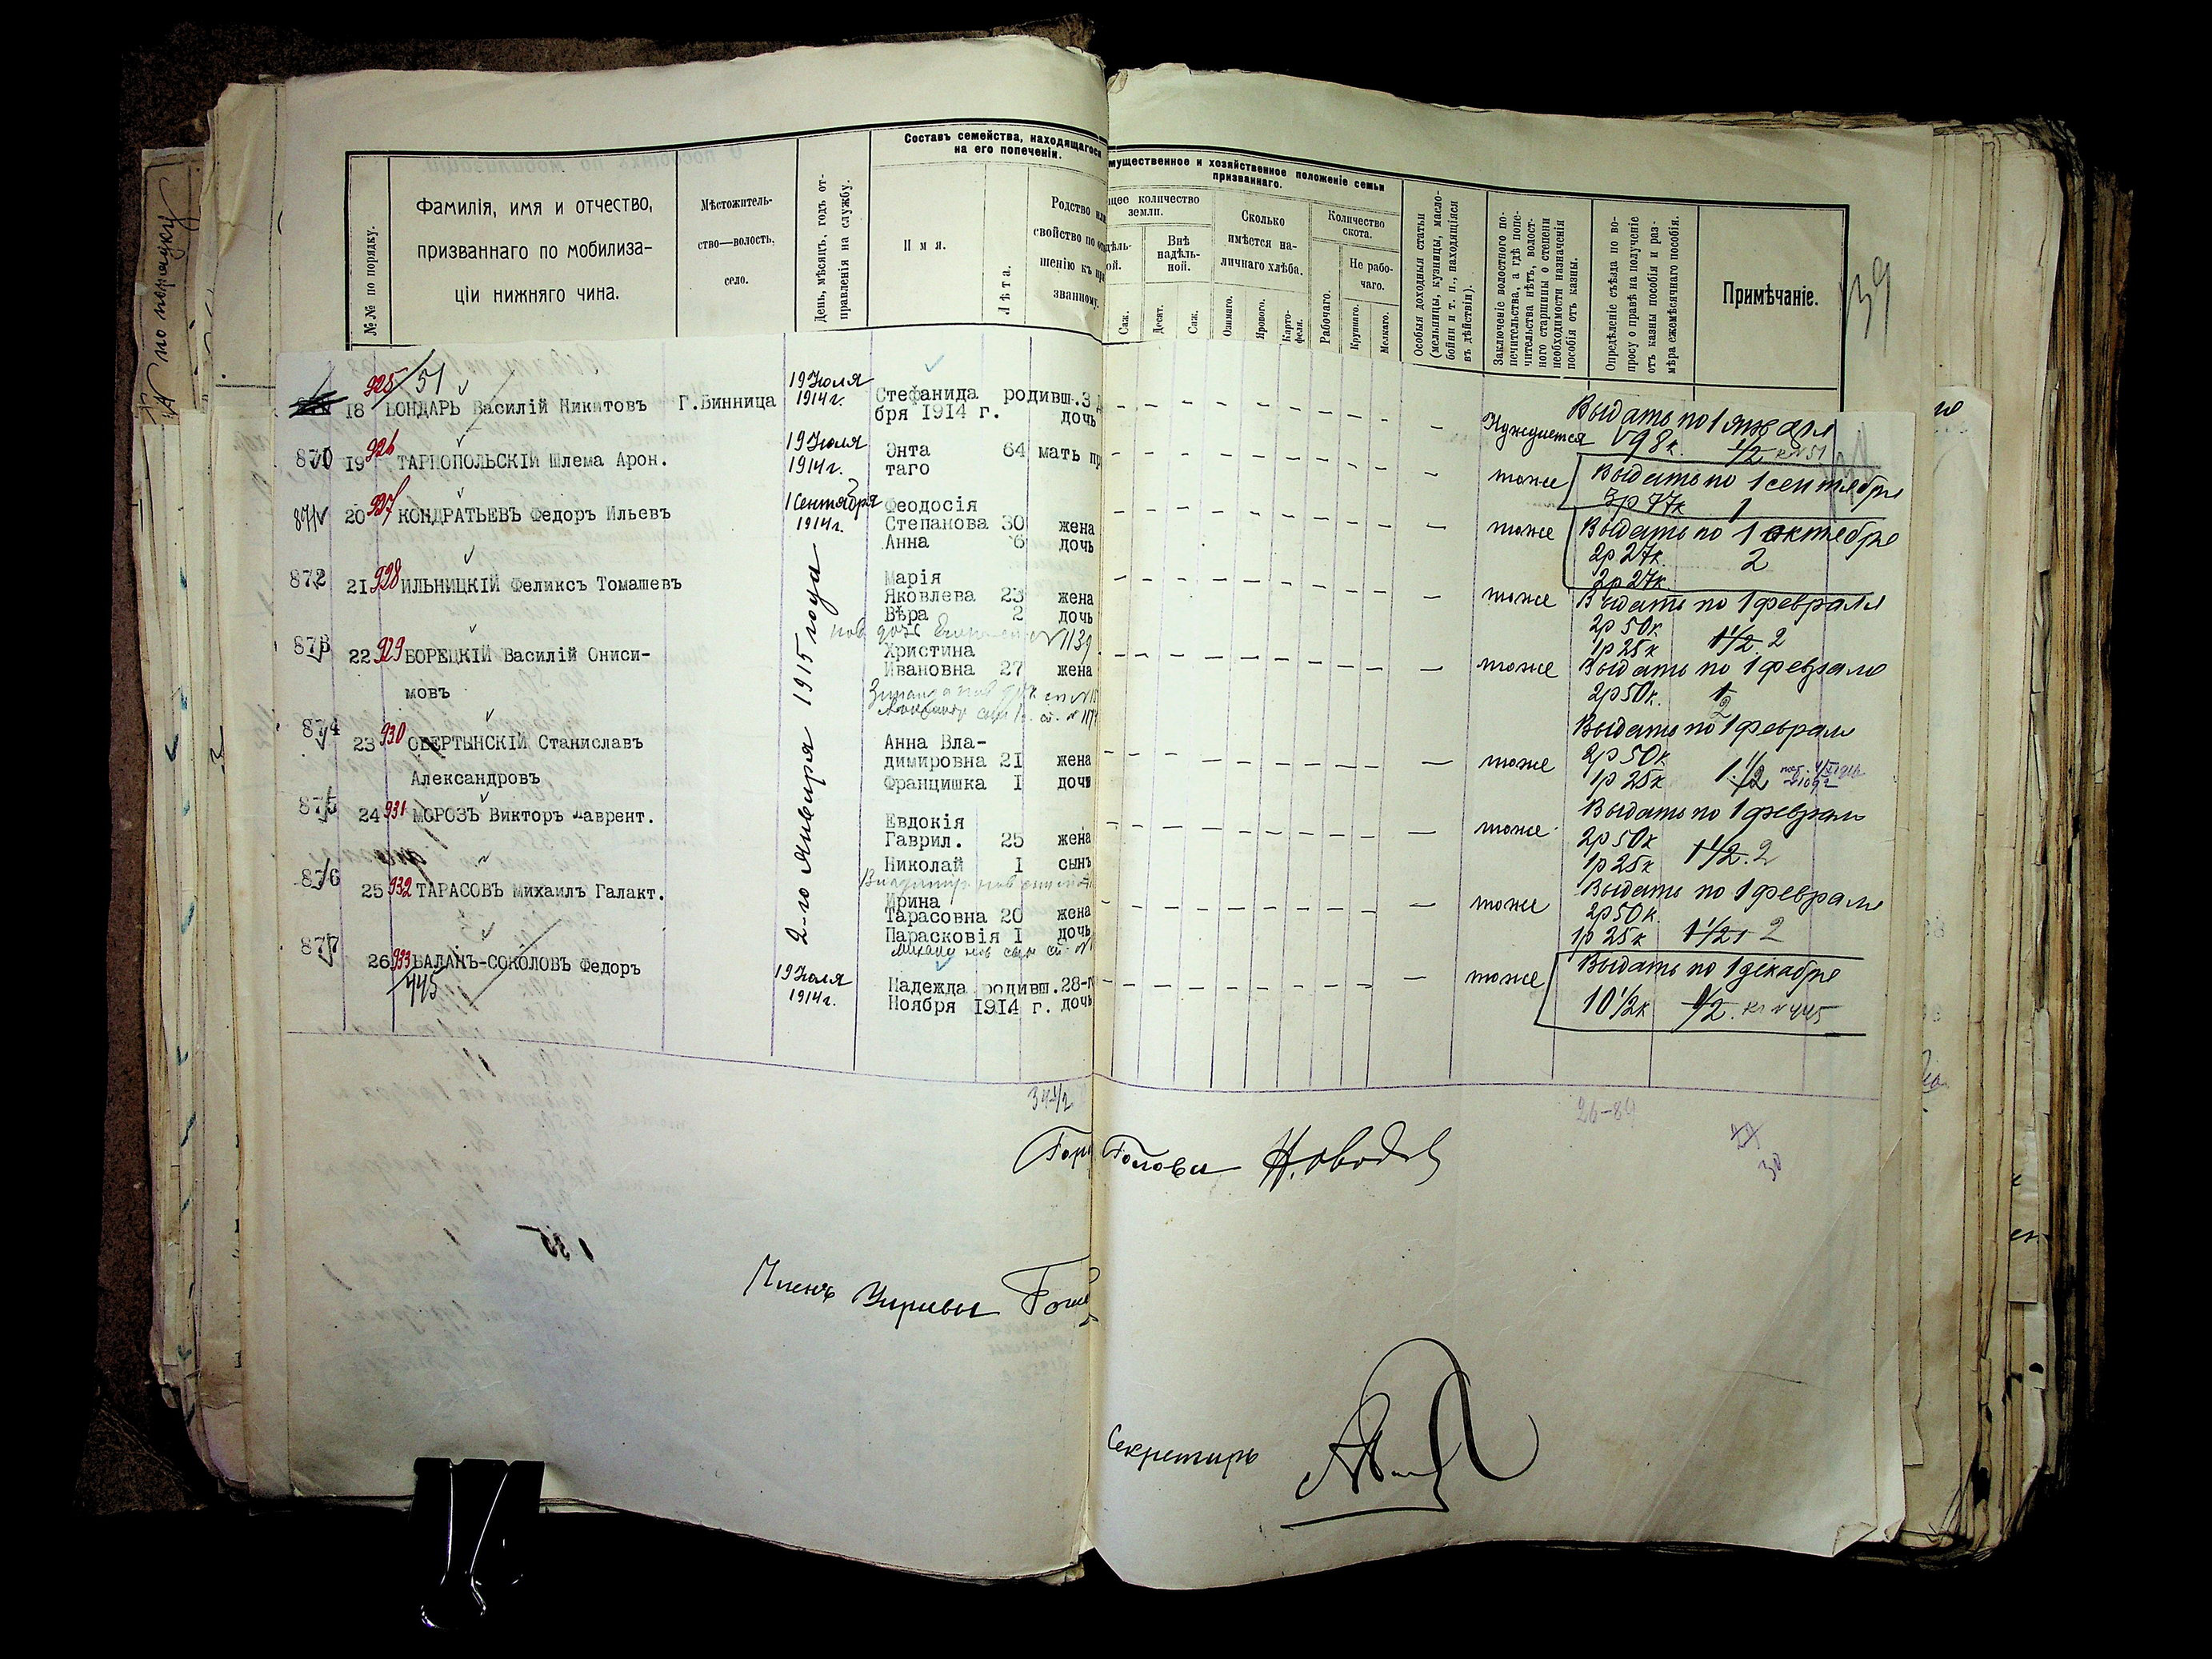 № по порядку
Составъ семейства, находящагося
на его попеченіи.
мущественное и хозяйственное положеніе семьи
призваннаго.
№№ по порядку.
Фамилія, имя и отчество,
призваннаго по мобилиза-
ціи нижняго чина.
Мѣстожитель-
ство—волость,
село.
День, мѣсяцъ, годъ от-
правленія на службу.
Имя.
Лѣта.
Родство или
свойство по
шенію къ
званному.
щее количество
земли.
Внѣ
надѣль-
ной.
Саж.
Десят.
Саж.
Сколько
имѣется на-
личнаго хлѣба.
Озимаго.
Ярового.
Карто-
феля.
Количество
скота.
Рабочаго.
Не рабо-
чаго.
Крупнаго.
Мелкаго.
Особыя доходныя статьи
(мельницы, кузницы, масло-
бойни и т. п., находящіяся
въ дѣйствіи).
Заключеніе волостного по-
печительства, а гдѣ попе-
чительства нѣтъ, волост-
ного старшины о степени
необходимости назначенія
пособія отъ казны.
Опредѣленіе съѣзда по во-
просу о правѣ на полученіе
отъ казны пособія и раз-
мѣра ежемѣсячнаго пособія.
Примѣчаніе.
39
925/51
18 БОНДАРЬ Василій Никитовъ Г.Винница
19 Юля
1914 г.
Стефанида родивш.3
бря 1914 г. дочь
Нуждается
Выдать по 1
98к. 1/2 к № 51
870 19 926 ТАРНОПОЛЬСКІЙ Шлема Арон.
19 Юля
1914 г.
Энта 64 мать
таго
тоже
Выдать по 1 сентября
3р 77к 1
871 20 927 КОНДРАТЬЕВЪ Федоръ Ильевъ
1 Сентября
1914 г.
Феодосія
Степанова 30 жена
Анна 6 дочь
тоже
Выдать по 1 октября
2р 27к. 2
2р 27к
872 21 928 ИЛЬНИЦКІЙ Феликсъ Томашевъ
2-го Января 1915 года
Марія
Яковлева 23 жена
Вѣра 2 дочь
№ 1139
тоже
Выдать по 1 февраля
2р 50к
1р 25к 1 1/2. 2
873 22 929 БОРЕЦКІЙ Василій Ониси-
мовъ
Христина
Ивановна 27 жена
тоже
Выдать по 1 февраля
2р 50к. 1
2
874 23 930 ОБЕРТЫНСКІЙ Станиславъ
Александровъ
Анна Вла-
димировна 21 жена
Францишка 1 дочь
тоже
Выдать по 1 февраля
2р 50к
1р 25к 1 1/2
875 24 931 МОРОЗЪ Викторъ Лаврент.
Евдокія
Гаврил. 25 жена
Николай 1 сынъ
тоже
Выдать по 1 февраля
2р 50к
1р 25к 1 1/2. 2
876 25 932 ТАРАСОВЪ Михаилъ Галакт.
Ирина
Тарасовна 20 жена
Парасковія 1 дочь
тоже
Выдать по 1 февраля
2р 50к.
1р 25к 1 1/2 2
877 26 933 БАЛАНЪ-СОКОЛОВЪ Федоръ
445
19 Юля
1914 г.
Надежда родивш.28-г
Ноября 1914 г. дочь
тоже
Выдать по 1 декабря
10 1/2к 1/2. к № 445
34 1/2
26-89
30
Гор Голова
Членъ Управы
Секретарь